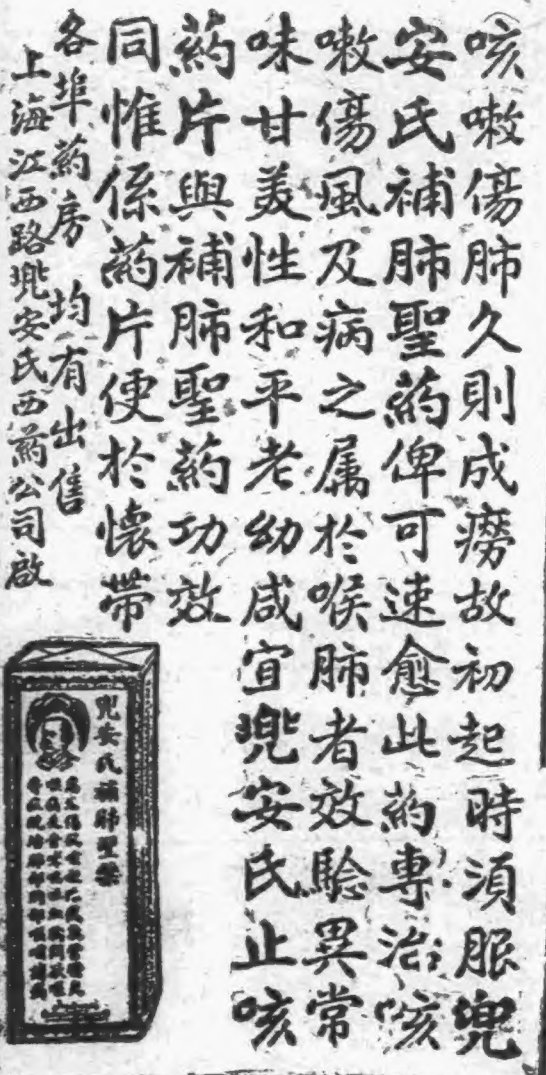 咳嗽傷肺久則成癆故初起時須服兜
安氏補肺聖葯俾可速愈此葯專治咳
嗽傷風及病之属於喉肺者效騐異常
味甘美性和平老幼咸宜兜安氏止咳
葯片與補肺聖葯功效
同惟係葯片便於懷帶
各埠葯房均有出售
上海江西路兜安氏西葯公司啟
兜安氏補肺聖藥